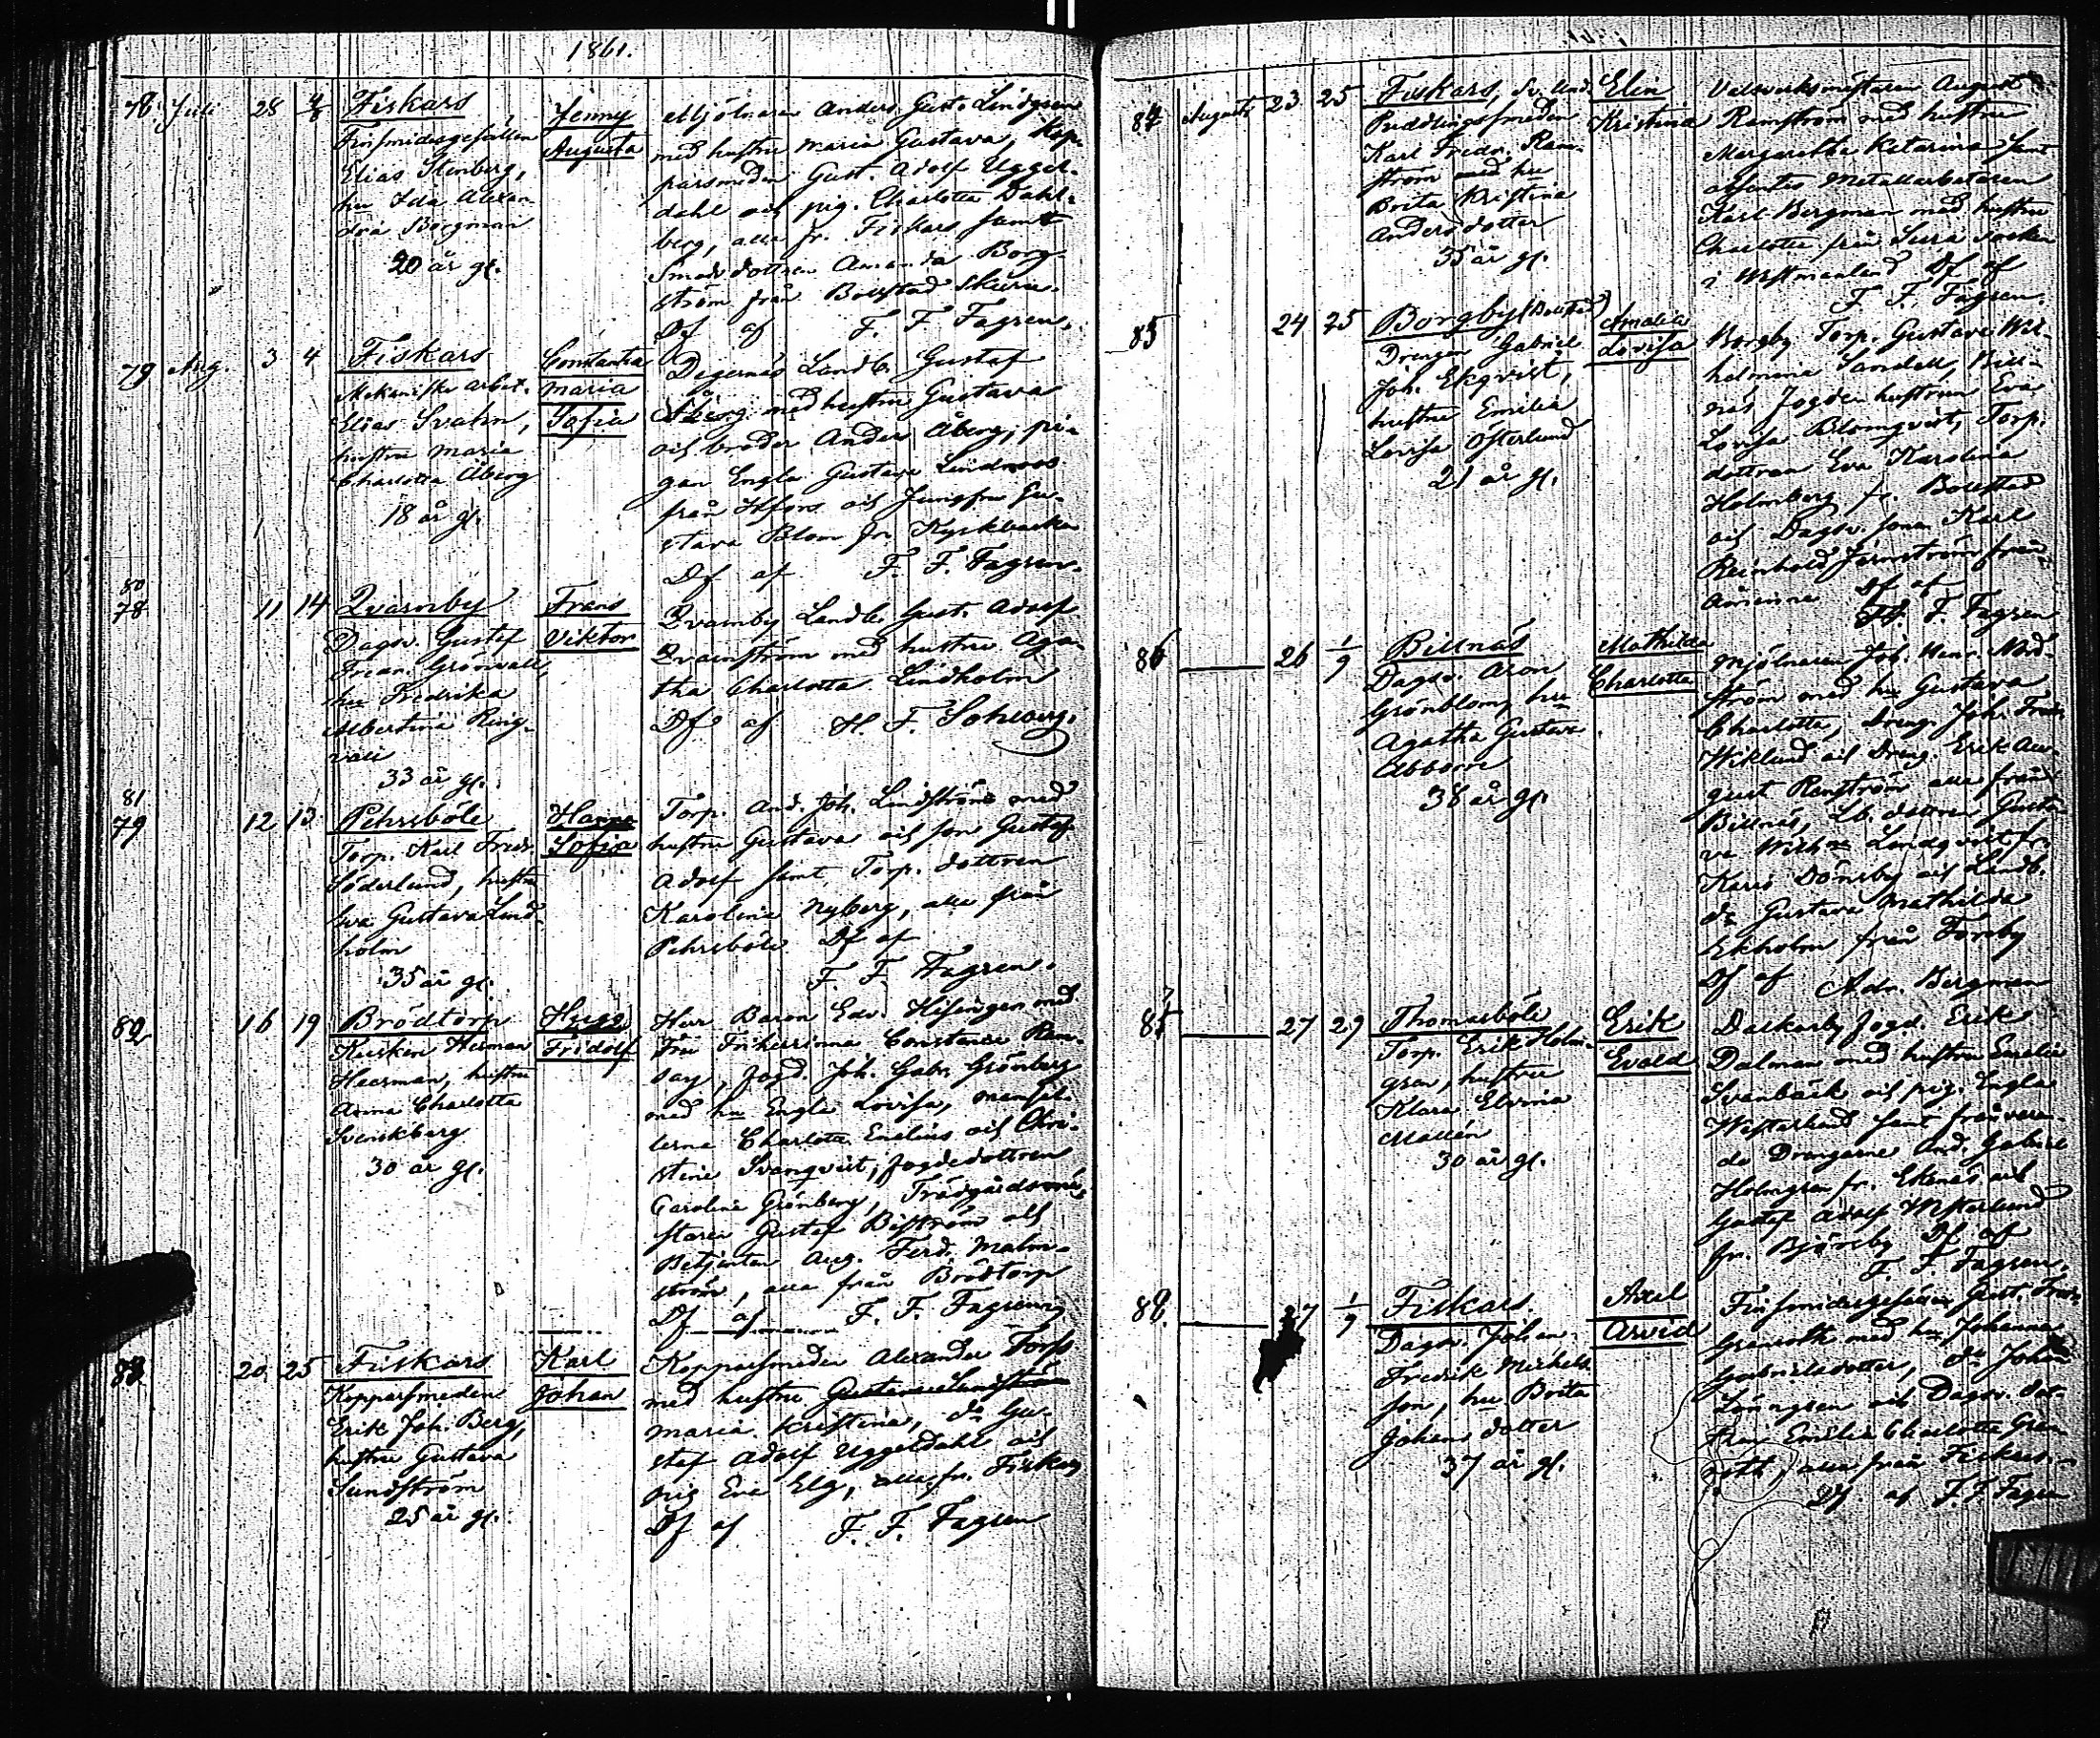 1861.
78. Juli 28 4/8 Fiskars
Finsmidesgesällen
Elias Stenberg,
hu Ida Alexan-
dra Borgman
20 år gl.
Jenny
Augusta
Mjölnaren Anders Gust. Lindgren
med hustru Maria Gustava, Kop-
parsmeden Gust. Adolf Uggel-
dahl och pig. Charlotta Dahl-
berg, alla fr. Fiskars samt
Smeds dottren Amanda Borg-
ström från Bollstad Skuru.
Df af F. F. Fagren.
79 Aug. 3 4 Fiskars
Mekaniske arbet.
Elias Svahn,
hustru Maria
Charlotta Åberg
18 år gl.
Constantia
Maria
Sofia
Degernäs Landb. Gustaf
Åberg med hustru Gustava
och broder Anders Åberg, pi-
gan Engla Gustava Lindroos
från Hfors och Jungfru Gu-
stava Blom fr. Kyrkbacka
Df af F. F. Fagren.
80
78 11 14 Qvarnby
Dagsv. Gustaf
Grönvall,
hu Fredrika
Albertina Ring-
vall
33 år gl.
Frans
Viktor
Qvarnby Landb. Gust. Adolf
Qvarnström med hustru Aga-
tha Charlotta Lindholm
Df af H. F. Sohlberg.
81
79 12 13 Pehrsböle
Torp. Karl Fredr.
Söderlund, hustru
Eva Gustava Lind-
holm
35 år gl.
Sofia
Torp. And. Joh. Lindström med
hustru Gustava och son Gustaf
Adolf samt Torp. dottren
Karolina Nyberg, alla från
Pehrsböle Df af
F. F. Fagren.
82 16 19 Brödtorp
Kusken Herman
Heerman, hustru
Anna Charlotta
Svenskberg
30 år gl.
Hugo
Fridolf
Herr Baron Edv. Hisinger med
Fru Friherrinna Constance Ram-
say, Fogd. Joh. Gabr. Grönberg
med hu Engla Lovisa, mamsel-
lerna Charlotta Enelius och Chri-
stine Svanqvist, fogdedottren
Carolina Grönberg, Trädgårdsmä-
staren Gustaf Biström och
Betjenten Aug. Ferd. Malm-
ström, alla från Brödtorp
Df af F. F. Fagren
83 20 25 Fiskars
Kopparsmeden
Erik Joh. Berg,
hustru Gustava
Sundström
25 år gl.
Karl
Johan
Kopparsmeden Alexander Forss
med hustru Gustava Sundström
Maria Kristina, do Gu-
staf Adolf Uggeldahl och
pig Eva Elg, alla fr. Fiskars
Df af F. F. Fagren
84 Augusti 23 25 Fiskars, Sv. Und.
Puddlingssmeden
Karl Fredr. Ram-
ström med hu
Brita Kristina
Andersdotter
35 år gl.
Elin
Kristina
Valsverksmästaren August
Ramström med hustru
Margaretha Katarina samt
absentes Metallarbetaren
Karl Bergman med hustru
Charlotta från Sura socken
i Westmanland Df af
F. F. Fagren.
85 24 25 Borgby (Bollstad)
Drengen Gabriel
Joh. Ekqvist,
hustru Emilia
Lovisa Österlund
21 år gl.
Amalia
Lovisa
Borgby Torp. Gustava Wil-
helmina Sandell, Bill-
näs Fogden hustrun Eva
Lovisa Blomqvist, Torp.
dottren Eva Karolina
Holmberg fr. Bollstad
och Dagsv. sonen Karl
Reinhold Jernström från
Df af
F. F. Fagren
86 26 1/9 Billnäs
Dagsv. Aron
Grönblom, hu
Agatha Gustava
Abborre
38 år gl.
Mathilda
Charlotta
Mjölnaren Joh. Henr. Nord-
ström med hu Gustava
Charlotta, dreng. Joh. Fred.
Wiklund och Dreng. Erik Au-
gust Renström alla från
Billnäs, Lb. dottren Gusta-
va Wilhna Lindqvist fr.
Karis Dönsby och Landb.
do Gustava Mathilda
Ekholm från Forsby
Df af Adr. Bergman
87 27 29 Thomasböle
Torp. Erik Holm-
gren, hustru
Klara Elvira
Mallén
30 år gl.
Erik
Evald
Dalkarby fogd. Erik
Dalman med hustru Emelie
Svanbäck och pig. Engla
Westerlund samt frånvaran-
de Drengarne And. Gabriel
Holmgren fr. Ekenäs och
Gustaf Adolf Westerlund
fr. Björsby Df af
F. F. Fagren.
88. 27 1/9 Fiskars.
Dagsv. Johan
Fredrik Michels-
son, hu Brita
Johansdotter
37 år gl.
Axel
Arvid
Finsmidesgesällen Gust. Fred.
Granroth med hu Johanna
Gabrielsdotter, do Johan
Lönngren och Dagsv. dot-
tren Emilia Charlotta Gran-
roth, alla från Fiskars.
Df af F. F. Fagren